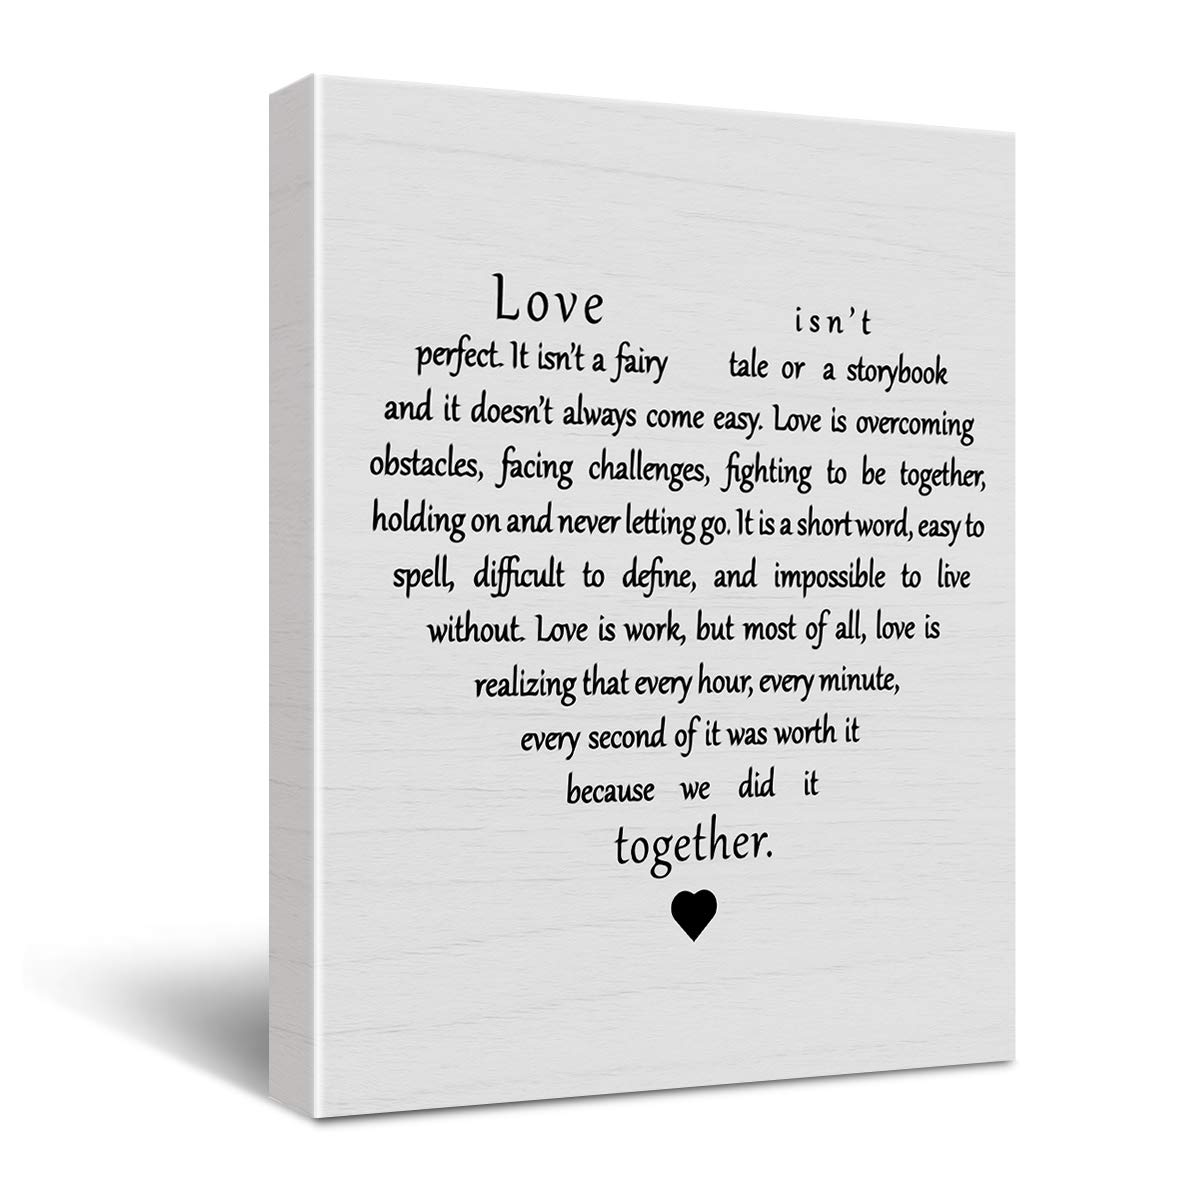 Love isn't
perfect. It isn't a fairy tale or a storybook
and it doesn't always come easy. Love is overcoming
obstacles, facing challenges, fighting to be together,
holding on and never letting go. It is a short word, easy to
spell, difficult to define, and impossible to live
without. Love is work, but most of all, love is
realizing that every hour, every minute,
every second of it was worth it
because we did it
together.